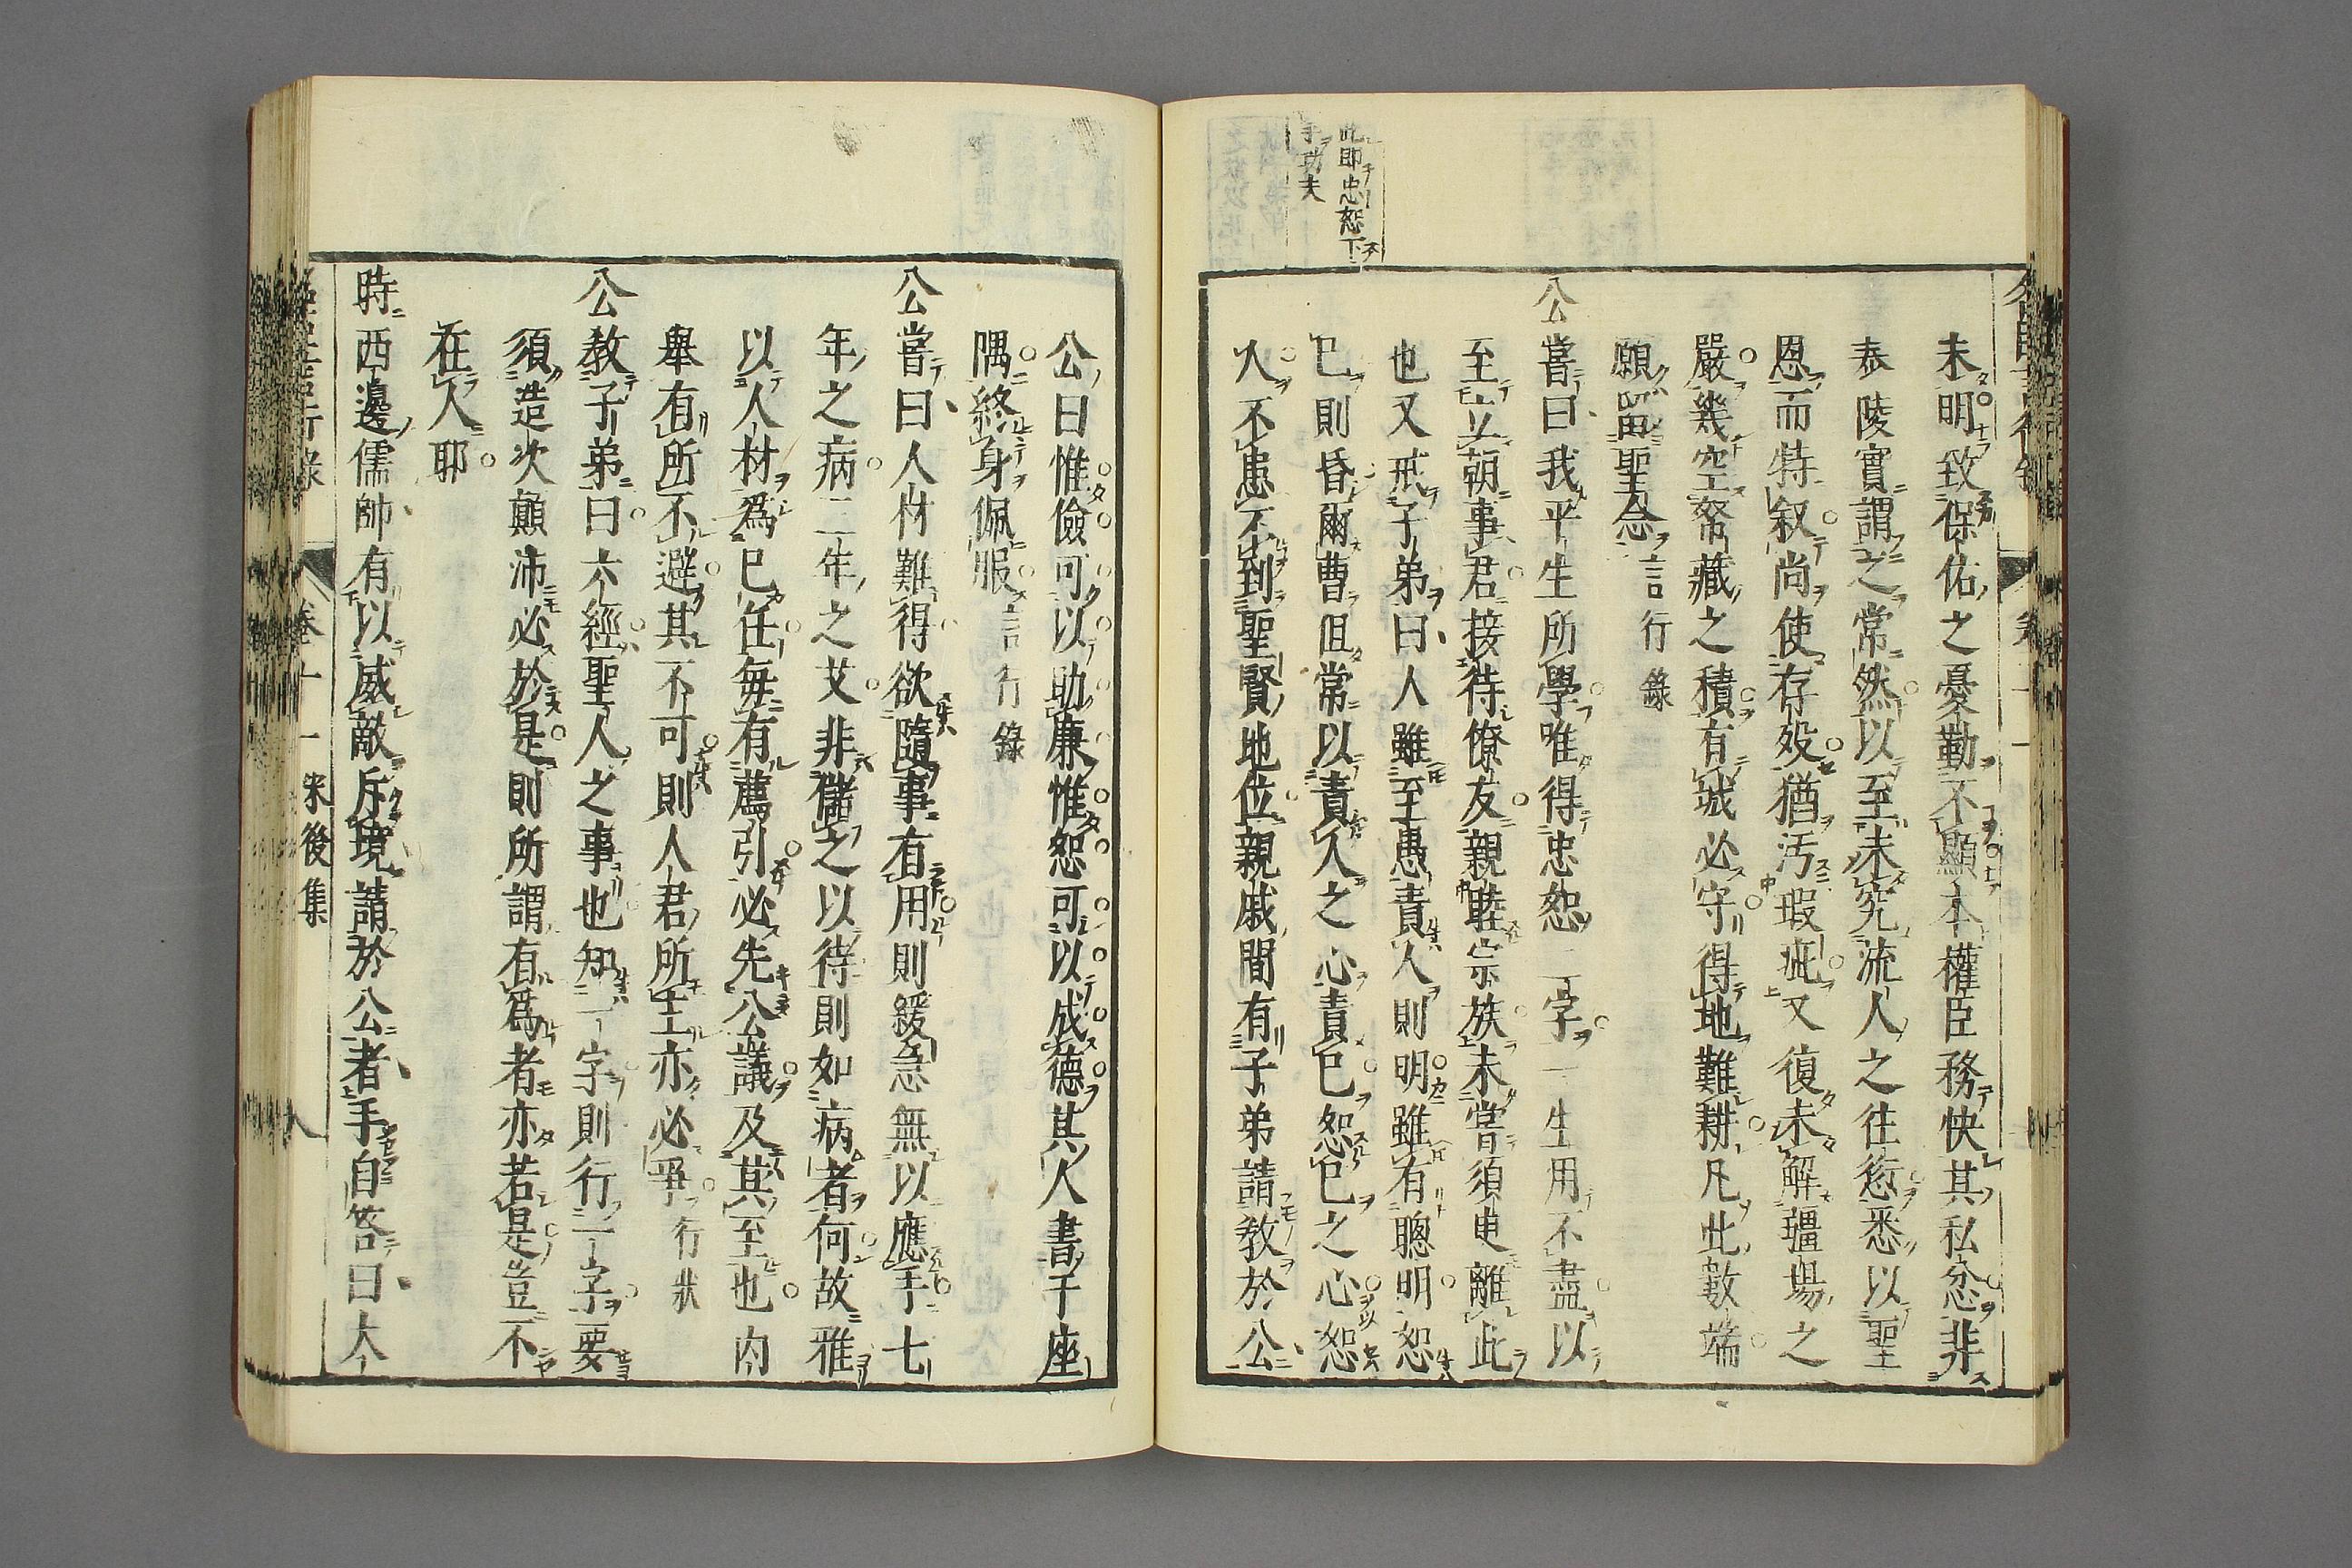 此即忠恕下
手功夫
未明致保佑之憂勤不顯本權臣務快其私忿非
泰陵實謂之常然以至未究流人之往愆悉以聖
恩而特叙尚使存歿猶汚瑕疵又復未解疆場之
嚴幾空帑藏之積有城必守得地難耕凡此數端
願留聖念言行錄
公嘗曰我平生所學唯得忠恕二字一生用不盡以
至立朝事君接待僚友親睦宗族未嘗須臾離此
也又戒子弟曰人雖至愚責人則明雖有聰明恕
已則昏爾曹但常以責人之心責已恕已之心恕
人不患不到聖賢地位親戚間有子弟請教於公
公曰惟儉可以助廉惟恕可以成德其人書于座
隅終身佩服言行錄
公嘗曰人材難得欲隨事有用則緩急無以應手七
年之病三年之艾非儲之以待則如病者何故雅
以人材爲已任每有薦引必先公議及其至也内
舉有所不避其不可則人君所主亦必爭行狀
公教子弟曰六經聖人之事也知一字則行一字要
須造次顛沛必於是則所謂有爲者亦若是豈不
在人耶
時西邊儒帥有以威敵斥境請於公者手自答曰大
卷十一 宋後集
八